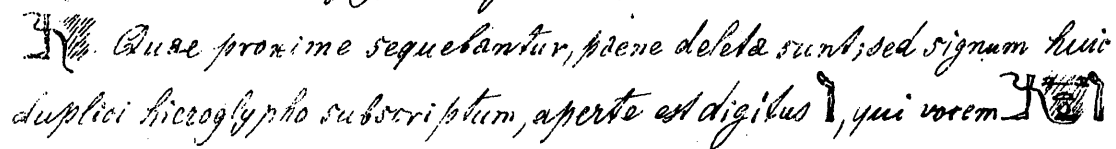 Quae proxime sequebantur, paene deleta sunt; sed signum huic
duplici hieroglypho subscriptum, aperte est digitus 𓂭, qui vocem